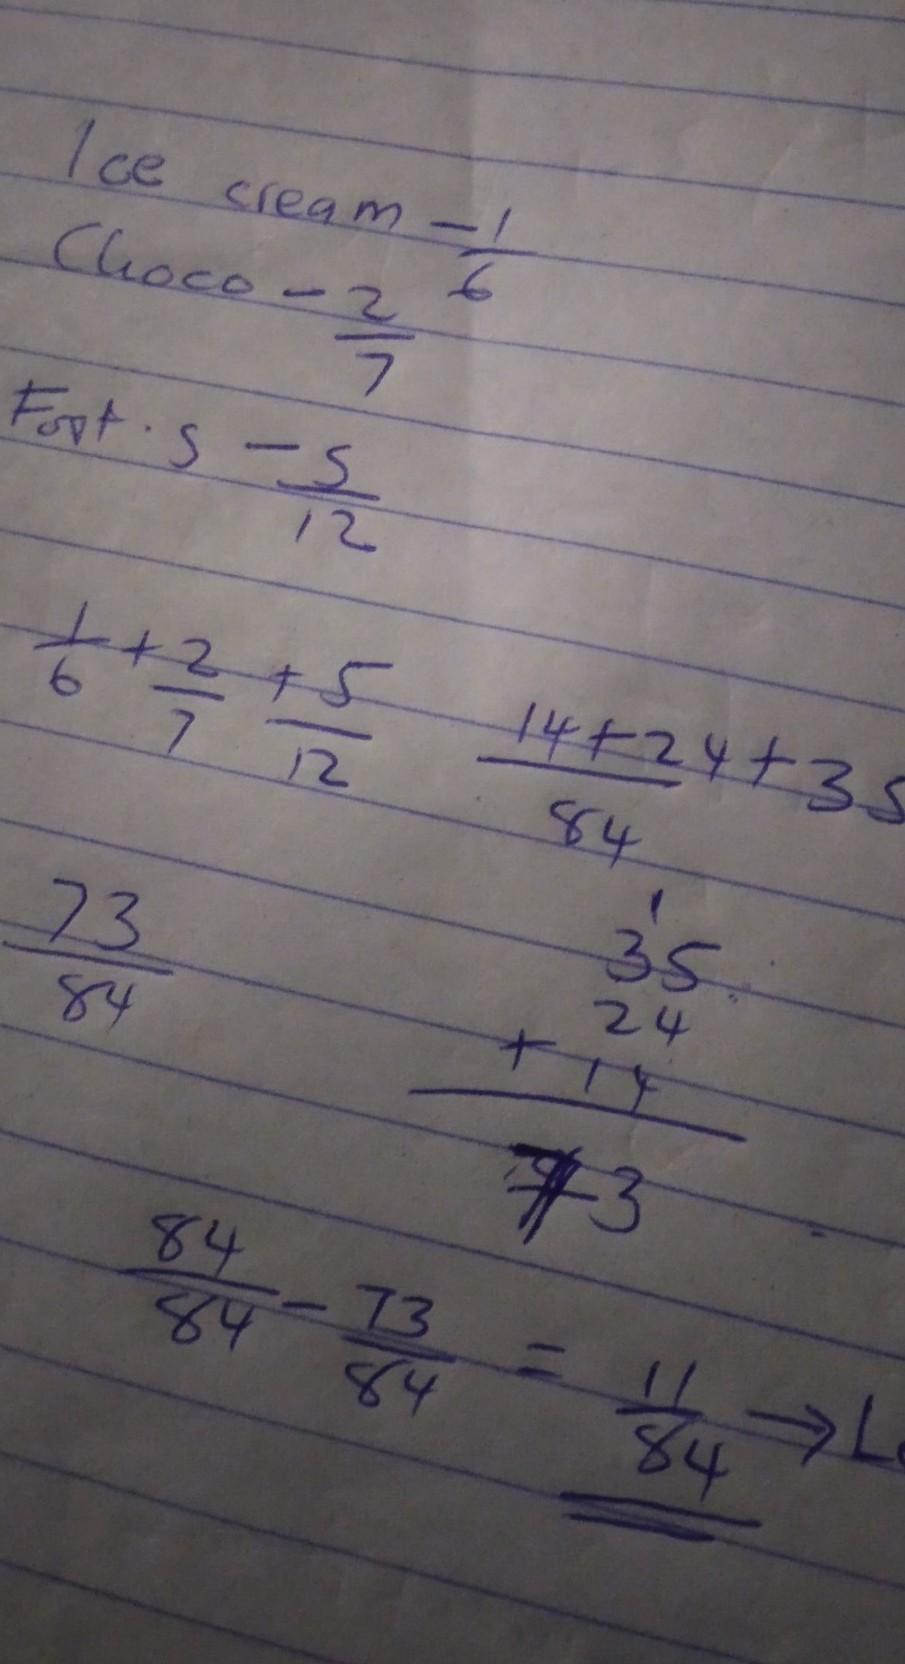 Ice cream - 1/6
Choco - 2/7
S - 5/12
1/6 + 2/7 + 5/12
14+24+35
84
73/84
1
35
24
+ 14
73
84/84 - 73/84 = 11/84 →